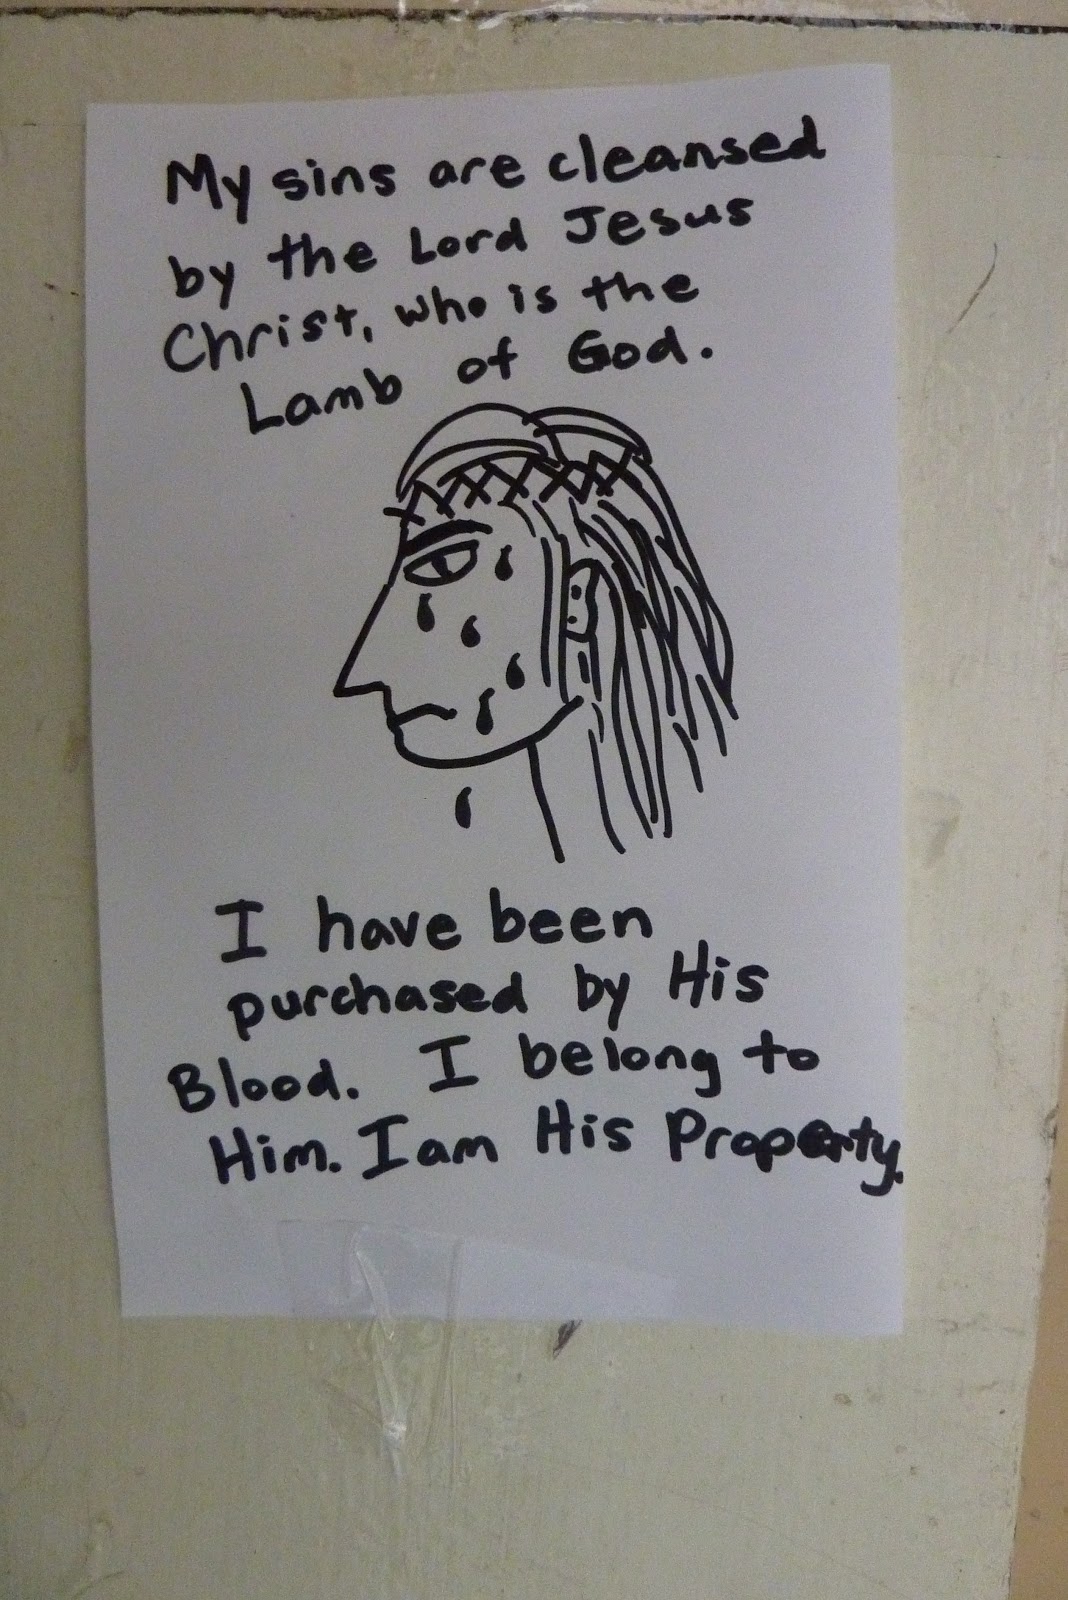 My sins are cleansed
by the Lord Jesus
Christ, who is the
Lamb of God.
I have been
purchased by His
Blood. I belong to
Him. I am His Property.